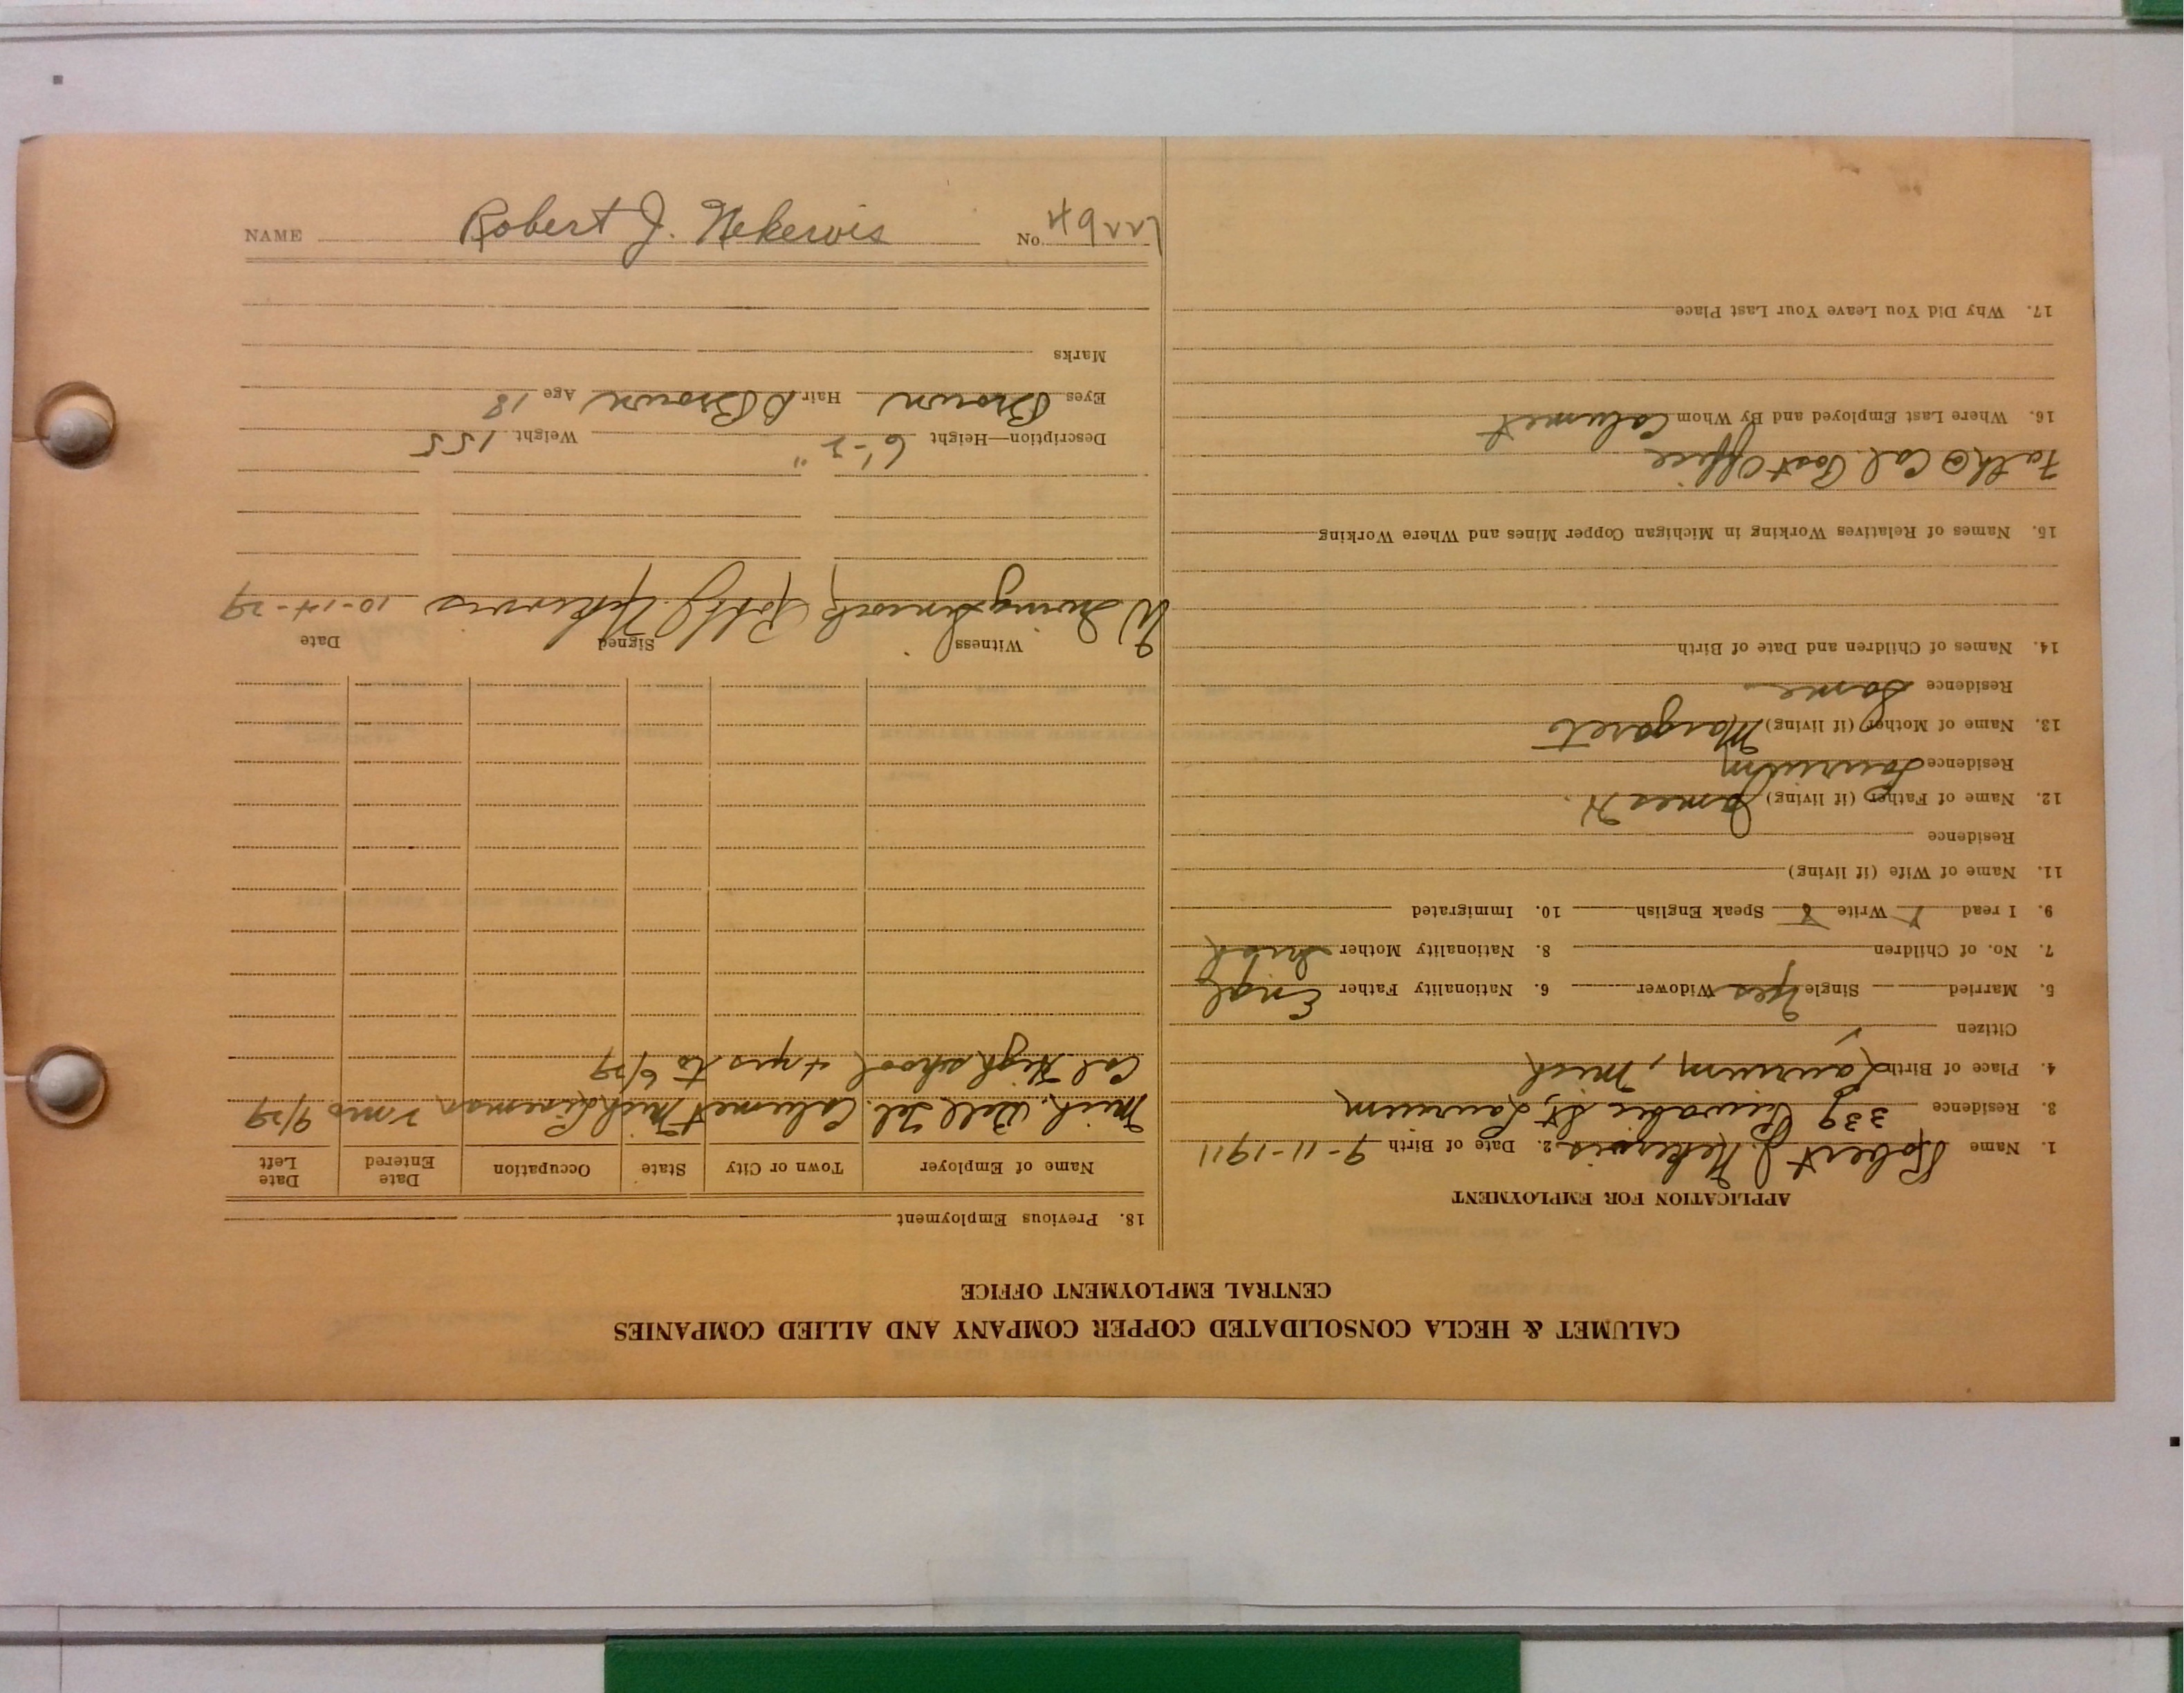 CALUMET & HECLA CONSOLIDATED COPPER COMPANY AND ALLIED COMPANIES
CENTRAL EMPLOYMENT OFFICE
APPLICATION FOR EMPLOYMENT
1. Name Robert J. Nekervis 2. Date of Birth 9-11-1911
3. Residence 339 Kearsarge St, Laurium
4. Place of Birth Laurium, Mich
Citizen
5. Married Single Yes Widower 6. Nationality Father Engl
7. No. of Children 8. Nationality Mother
9. I read Write Speak English 10. Immigrated
11. Name of Wife (if living)
Residence
12. Name of Father (if living) James H.
Residence Laurium
13. Name of Mother (if living) Margaret
Residence Same
14. Names of Children and Date of Birth
15. Names of Relatives Working in Michigan Copper Mines and Where Working
Cal. Post Office
16. Where Last Employed and By Whom Calumet
17. Why Did You Leave Your Last Place
18. Previous Employment
Name of Employer Town or City State Occupation Date Entered Date Left
Mich. Bell Tel. Calumet Mich Lineman 2 mos 9/29
Cal High school 4 yrs to 6/29
Witness Signed Date
Robt J. Nekervis 10-14-29
Description—Height 6'-2" Weight 155
Eyes Brown Hair D Brown Age 18
Marks
NAME Robert J. Nekervis No